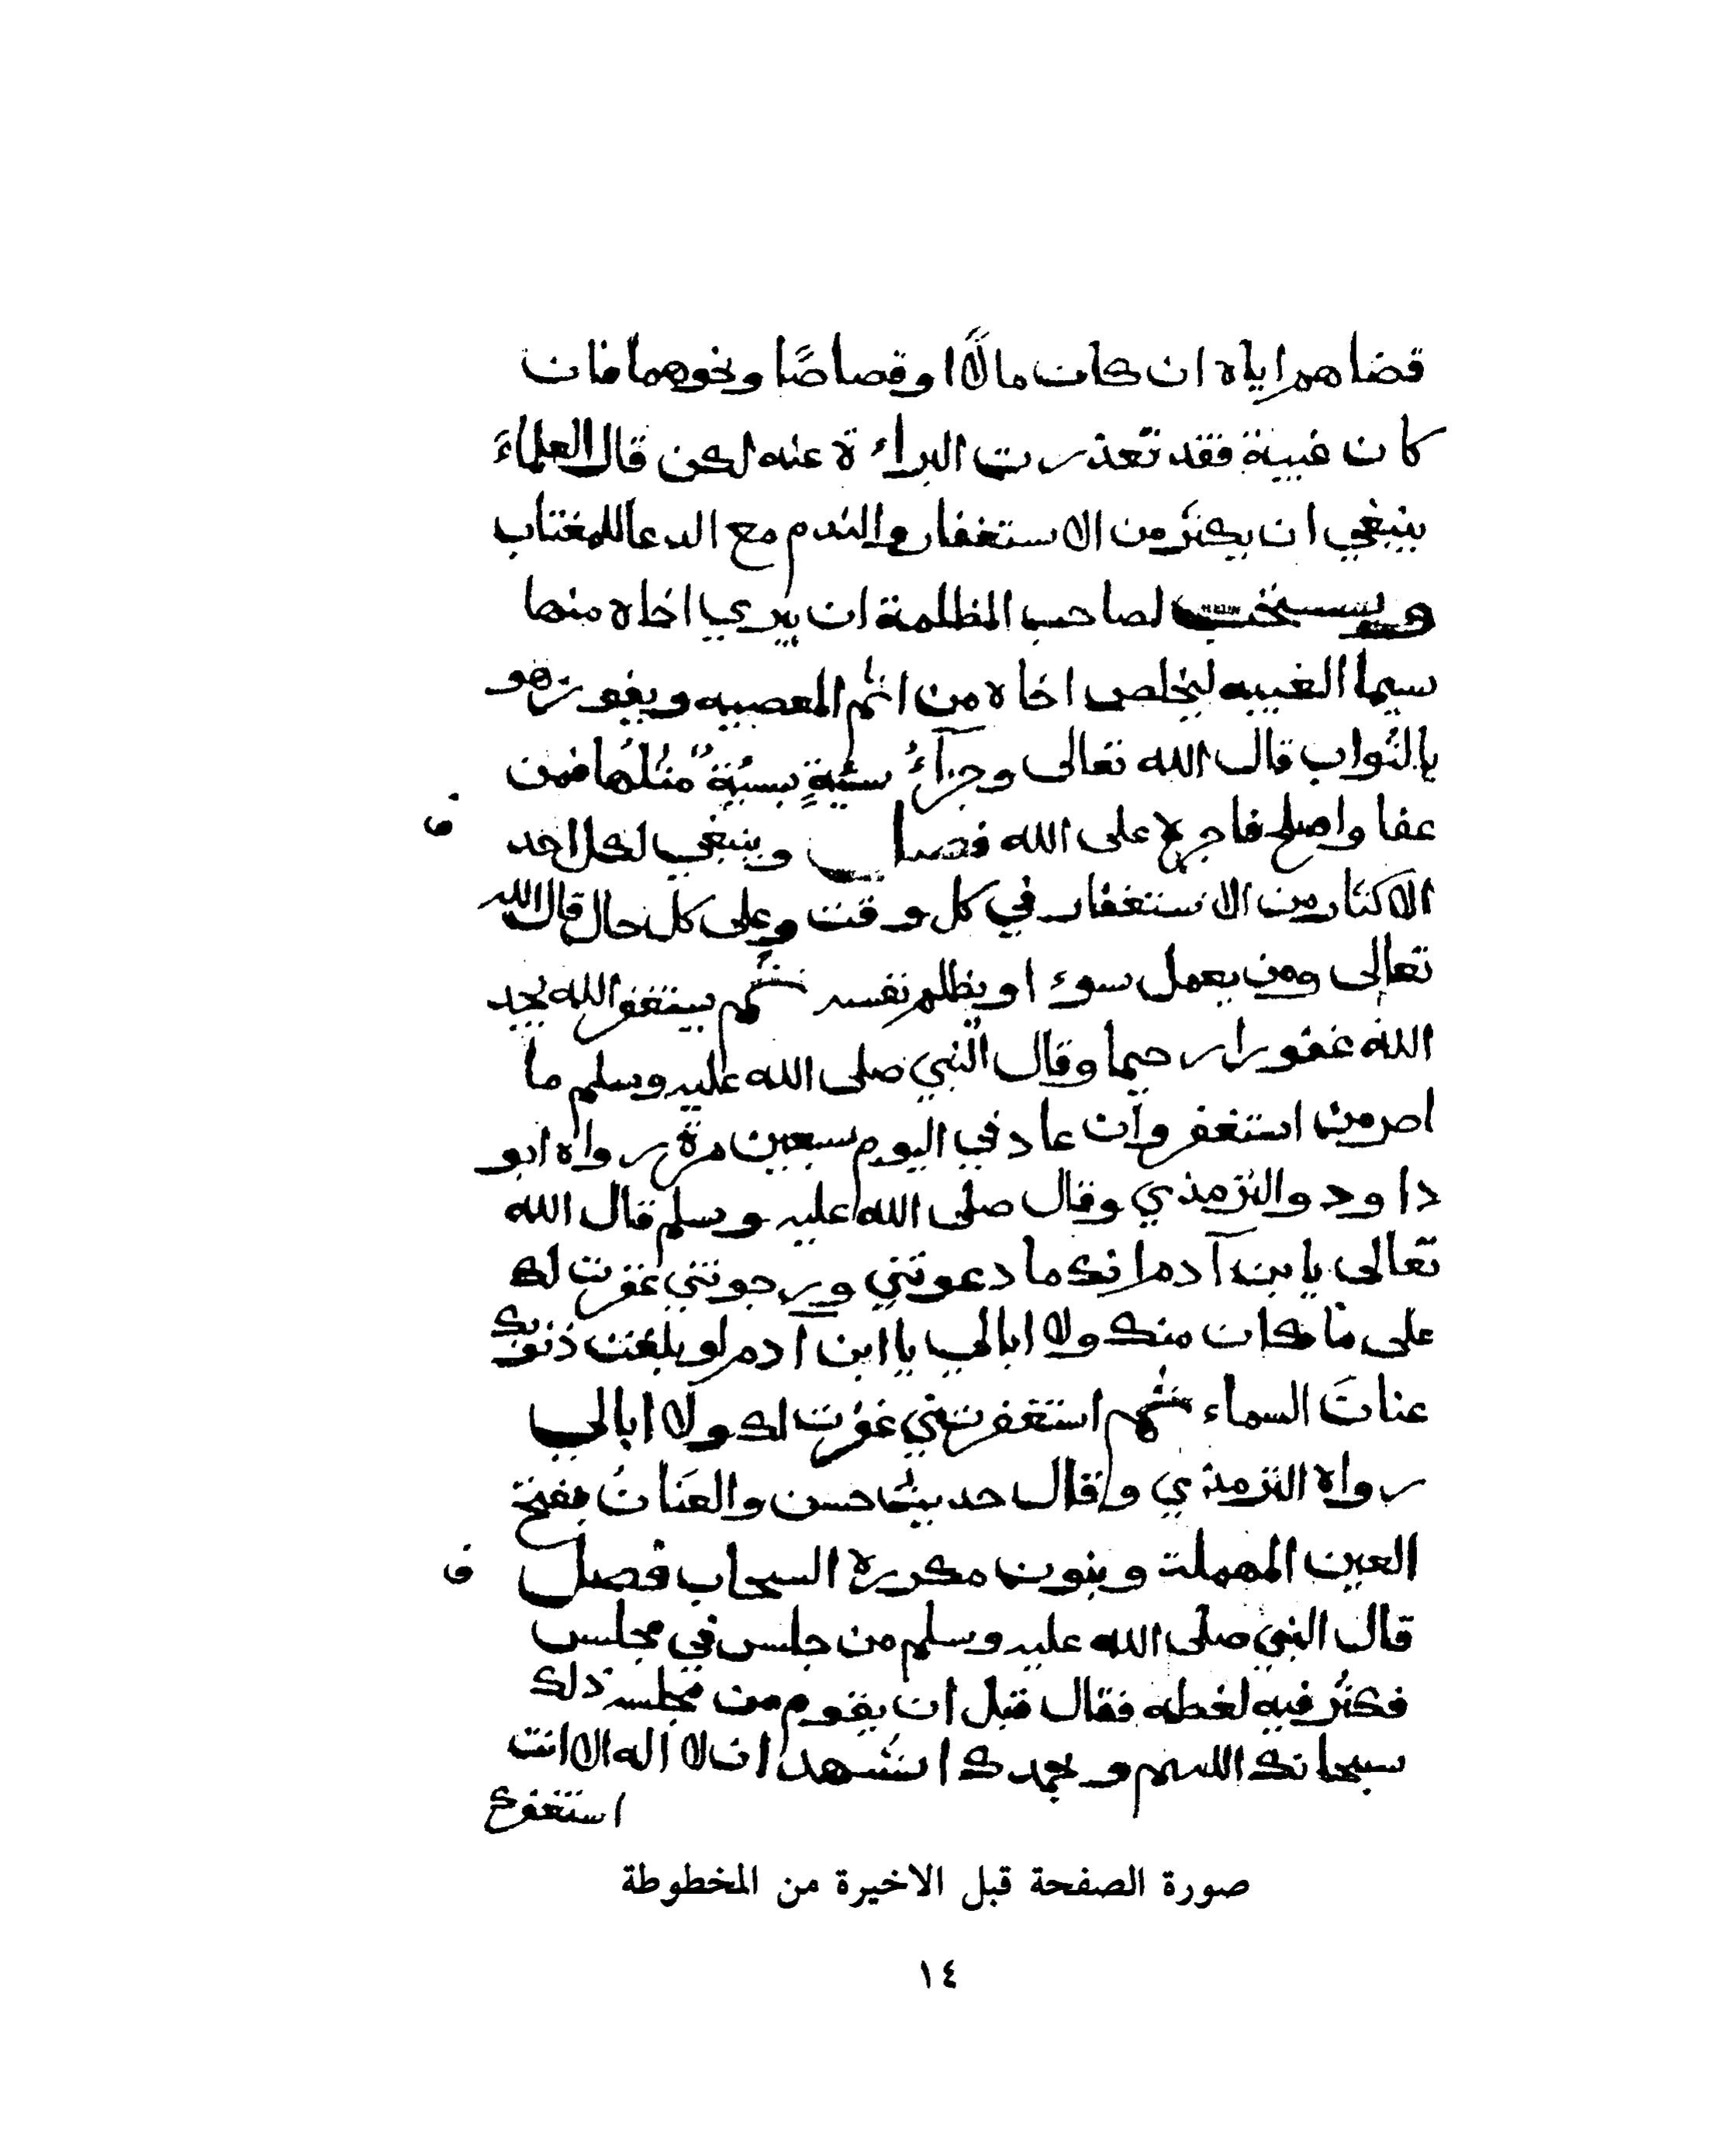 قضاهم اياه ان كان مالًا او قصاصًا ونحوهما فان
كان غيبة فقد تعذرت البراءة عنه لكن قال العلماءَ
ينبغي ان يكثر من الاستغفار والندم مع الدعا للمغتاب
ويستحب لصاحب المظلمة ان يبري اخاه منها
سيما الغيبه ليخلص اخاه من اثم المعصيه ويفوز هو
بالثواب قال الله تعالى وجزآءُ سئيةٍ سيئةٌ مثلُها فمن
عفا واصلح فاجره على الله فصل وينبغي لكل احد
ف
الاكثار من الاستغفار في كل وقت وعلى كل حال قال الله
تعالى ومن يعمل سوء او يظلم نفسه ثم يستغفر الله يجد
الله غفورا رحيما وقال النبي صلى الله عليه وسلم ما
اصر من استغفر وان عاد في اليوم سبعين مرة رواه ابو
داود والترمذي وقال صلى الله عليه وسلم قال الله
تعالى يا بن آدم انك ما دعوتني ورجوتني غفرت لك
على ما كان منك ولا ابالي يا ابن آدم لو بلغت ذنوبك
عنانَ السماء ثم استغفرتني غفرت لك ولا ابالي
رواه الترمذي وقال حديث حسن والعَنان بفتح
العين المهملة وبنون مكررة السحاب فصل
ف
قال النبي صلى الله عليه وسلم من جلس في مجلس
فكثُر فيه لغطه فقال قبل ان يقوم من مجلسه ذلك
سبحانك اللهم وبحمدك اشهد ان لا اله الا انت
استغفرك
صورة الصفحة قبل الاخيرة من المخطوطة
١٤